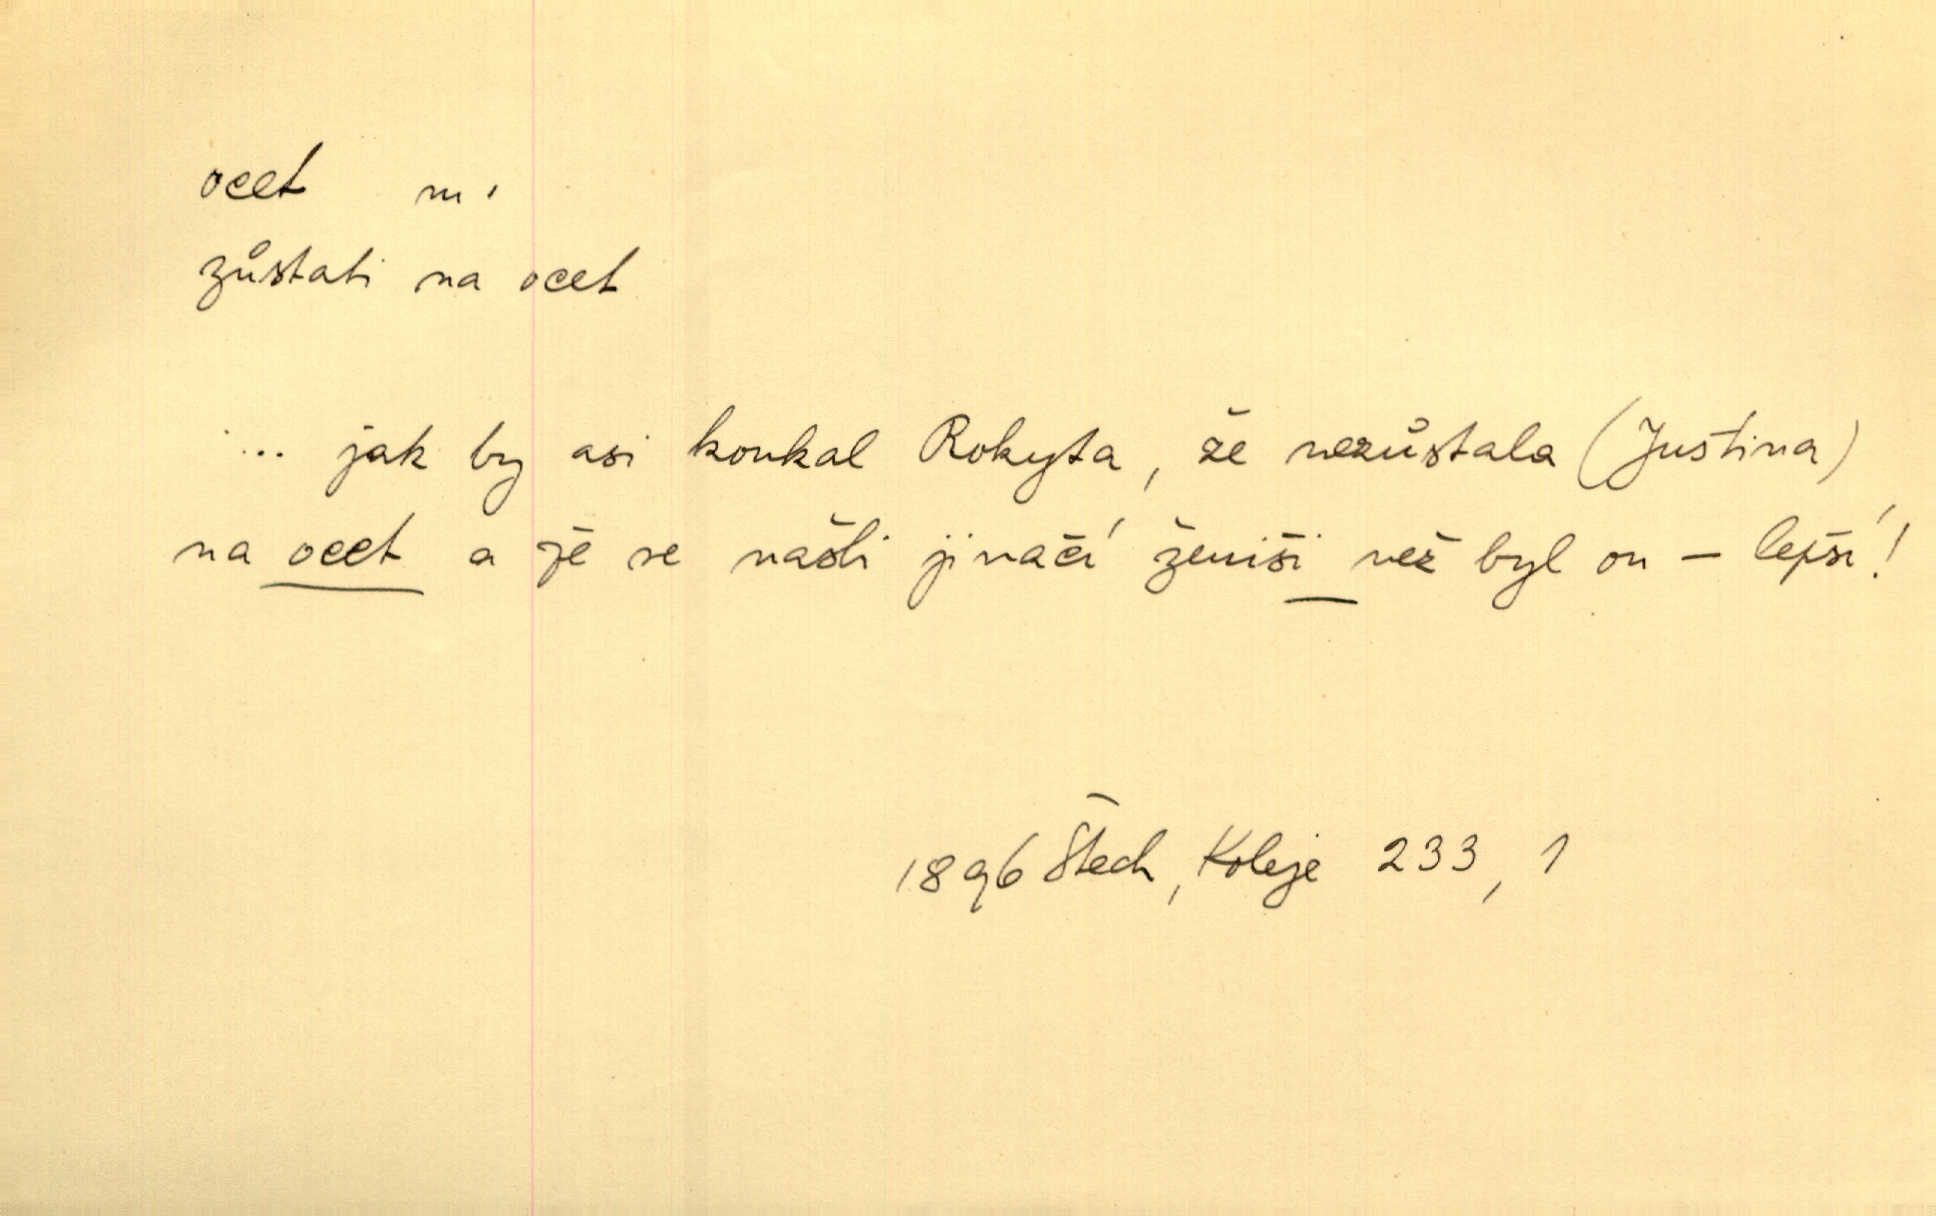 ocet m.
zůstati na ocet
... jak by asi koukal Rokyta, že nezůstala (Justina)
na ocet a že se našli jinačí ženiši než byl on – lepší!
1896 Štech, Koleje 233, 1